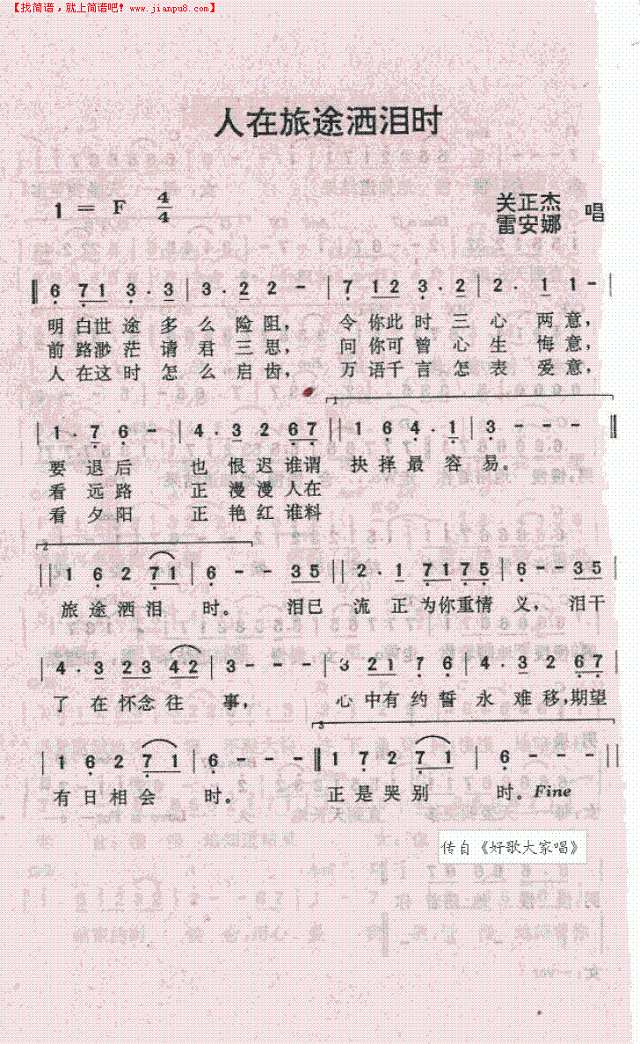 【找简谱，就上简谱吧! www.jianpu8.com】
人在旅途洒泪时
1 = F 4/4
关正杰
雷安娜 唱
6 7 1 3 · 3 | 3 · 2 2 - | 7 1 2 3 · 2 | 2 · 1 1 - |
明白世途多么险阻，令你此时三心两意，
前路渺茫请君三思，问你可曾心生悔意，
人在这时怎么启齿，万语千言怎表爱意，
1 · 7 6 - | 4 · 3 2 6 7 | 1 6 4 · 1 | 3 - - - ||
要退后 也恨迟谁谓 抉择最容易。
看远路 正漫漫人在
看夕阳 正艳红谁料
2
|| 1 6 2 7 1 | 6 - - 3 5 || 2 · 1 7 1 7 5 | 6 - - 3 5 |
旅途洒泪 时。 泪已 流正为你重情义，泪干
4 · 3 2 3 4 2 | 3 - - - | 3 2 1 7 6 | 4 · 3 2 6 7 |
了在怀念往 事， 心中有约誓永难移，期望
3
1 6 2 7 1 | 6 - - - || 1 7 2 7 1 | 6 - - - ||
有日相会 时。 正是哭别 时。Fine
传自《好歌大家唱》